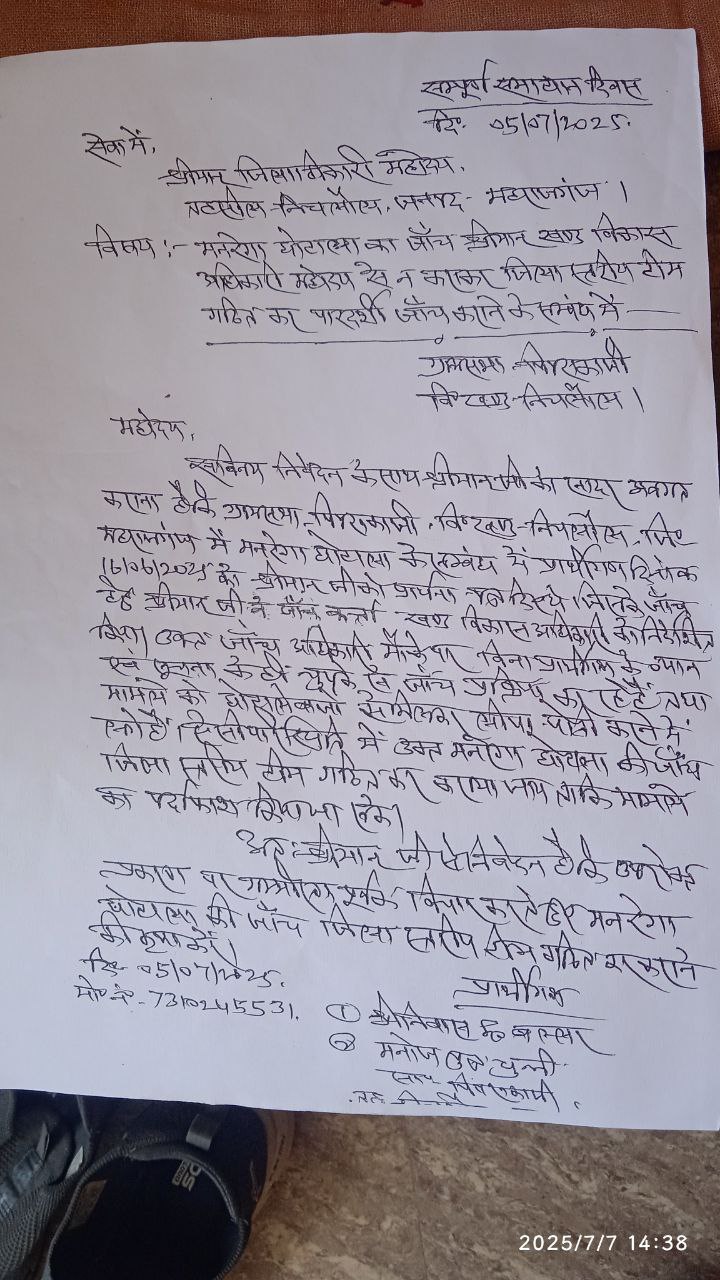 सम्पूर्ण समाधान दिवस
दि० 05/07/2025.
सेवा में,
श्रीमान जिलाधिकारी महोदय,
तहसील-निचलौल, जनपद- महराजगंज ।
विषय :- मनरेगा घोटाला का जाँच श्रीमान खण्ड विकास
अधिकारी महोदय से न कराकर जिला स्तरीय टीम
गठित कर पारदर्शी जाँच कराने के सम्बंध में —
ग्रामसभा
वि० खण्ड-निचलौल ।
महोदय,
सविनय निवेदन के साथ श्रीमान जी को सादर अवगत
कराना है कि ग्रामसभा वि० खण्ड-निचलौल, जि०
महराजगंज में मनरेगा घोटाला के सम्बंध में प्रार्थीगण दिनांक
16/06/2025 को श्रीमान जी को प्रार्थना पत्र दिये थे जिसके जाँच
हेतु श्रीमान जी ने जाँच कर्ता खण्ड विकास अधिकारी को निर्देशित
किया। उक्त जाँच अधिकारी मौके पर बिना प्रार्थीगण के
एवं सूचना के ही से जाँच प्रक्रिया कर रहे हैं तथा
मामले को से मिलकर लीपा पोती करने में
लगे हैं। ऐसी परिस्थिति में उक्त मनरेगा घोटाला की जाँच
जिला स्तरीय टीम गठित कर कराया जाय ताकि मामले
का पर्दाफाश किया जा सके।
अतः श्रीमान जी से निवेदन है कि उपरोक्त
प्रकरण पर गम्भीरता पूर्वक विचार करते हुए मनरेगा
घोटाला की जाँच जिला स्तरीय टीम गठित कर कराने
की कृपा करें।
दि०- 05/07/2025.
मो० नं०- 7310245531.
प्रार्थीगण
① श्रीनिवास
② मनोज पुत्र